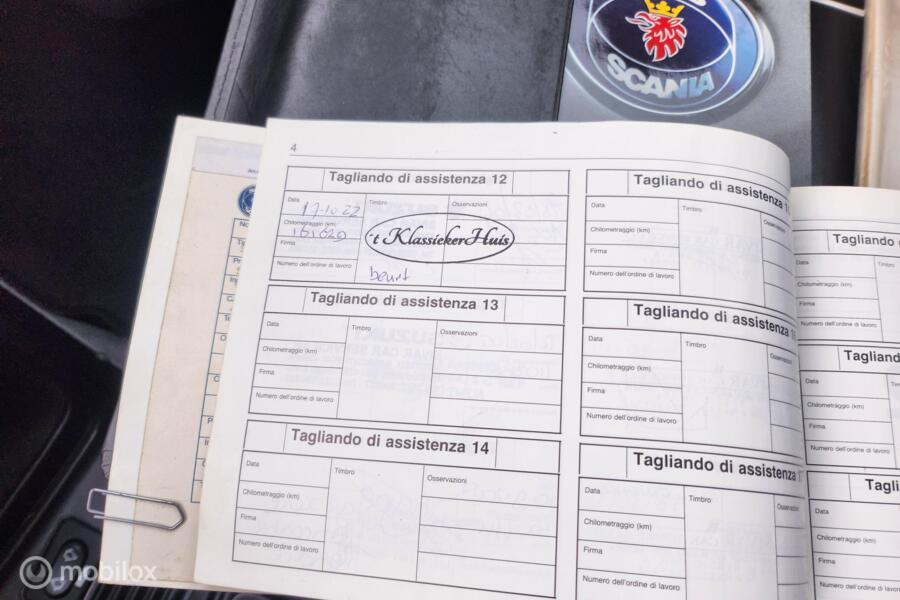 SCANIA
4
Tagliando di assistenza 12
Data
17-10-22
Timbro
Osservazioni
Chilometraggio (km)
161629
Firma
't KlassiekerHuis
Numero dell'ordine di lavoro
beurt
Tagliando di assistenza 13
Data
Timbro
Osservazioni
Chilometraggio (km)
Firma
Numero dell'ordine di lavoro
Tagliando di assistenza 14
Data
Timbro
Osservazioni
Chilometraggio (km)
Firma
Numero dell'ordine di lavoro
Tagliando di assistenza
Data
Timbro
Osservazioni
Chilometraggio (km)
Firma
Numero dell'ordine di lavoro
Tagliando di assistenza
Data
Timbro
Osservazioni
Chilometraggio (km)
Firma
Numero dell'ordine di lavoro
Tagliando di assistenza
Data
Timbro
Osservazioni
Chilometraggio (km)
Firma
Numero dell'ordine di lavoro
Tagliando
Data
Timbro
Chilometraggio (km)
Firma
Numero dell'ordine di lavoro
Tagliando
Data
Chilometraggio (km)
Firma
Numero dell'ordine di lavoro
Tagli
Data
Chilometraggio (km)
Firma
Numero dell'ordine di lavoro
mobilox